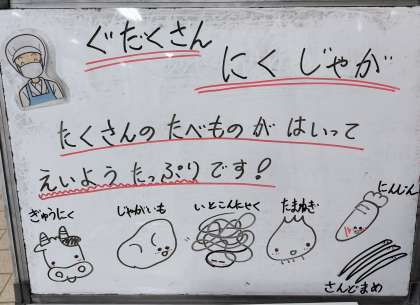 ぐだくさん
にくじゃが
たくさんのたべものがはいって
えいようたっぷりです!
ぎゅうにく
じゃがいも
いとこんにゃく
たまねぎ
にんじん
さんどまめ